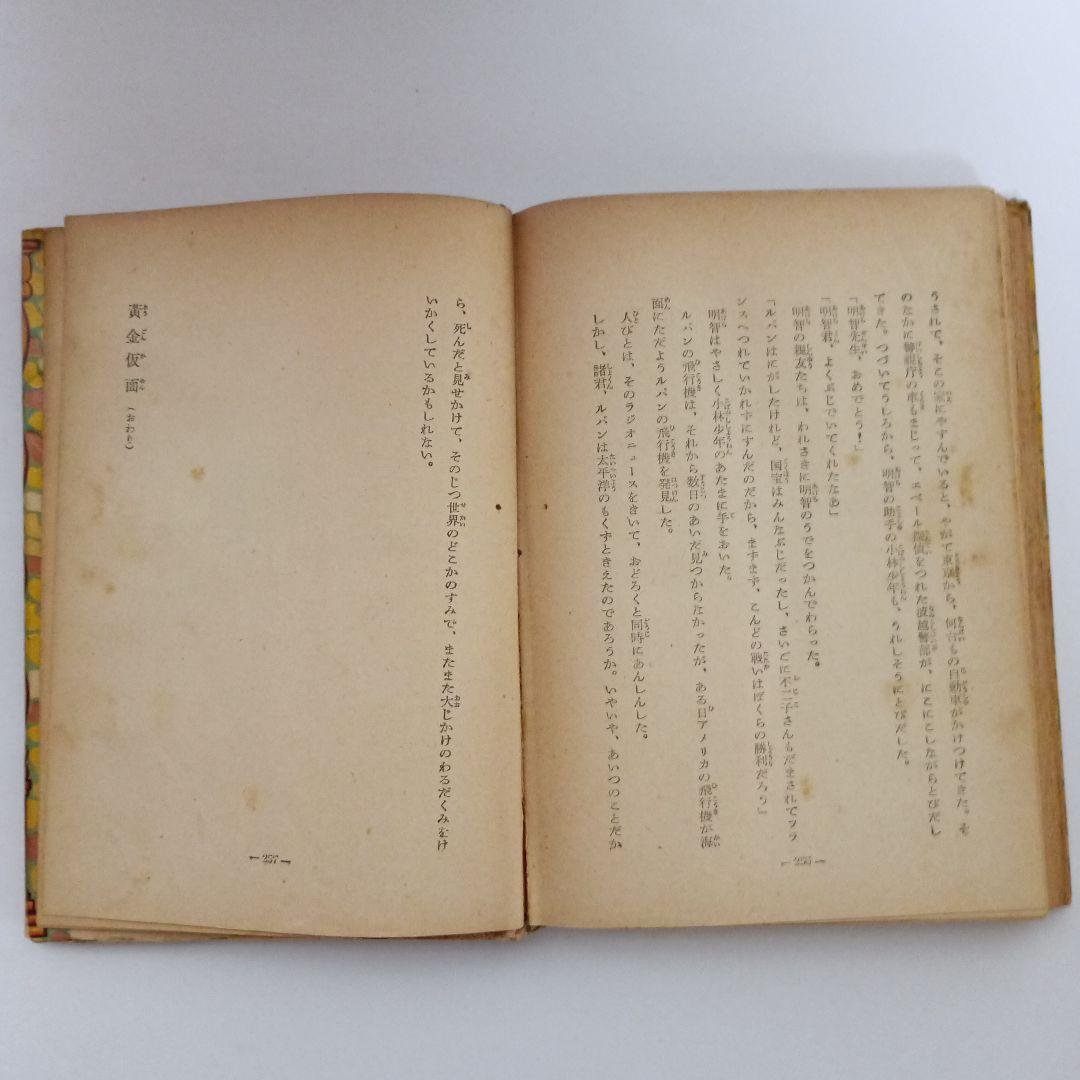 うされて、そこの家にやすんでいると、やがて東京から、何台もの自動車がかけつけてきた。そ
のなかに警視庁の車もまじって、エベール探偵をつれた波越警部が、にこにこしながらとびだし
てきた。つづいてうしろから、明智の助手の小林少年も、うれしそうにとびだした。
「明智先生、おめでとう！」
「明智君、よくぶじでいてくれたなあ」
明智の親友たちは、われさきに明智のうでをつかんでわらった。
「ルパンはにがしたけれど、国宝はみんなぶじだったし、さいごに不二子さんもだまされてフラ
ンスへつれていかれずにすんだのだから、まずまず、こんどの戦いはぼくらの勝利だろう」
明智はやさしく小林少年のあたまに手をおいた。
ルパンの飛行機は、それから数日のあいだ見つからなかったが、ある日アメリカの飛行機が海
面にただようルパンの飛行機を発見した。
人びとは、そのラジオニュースをきいて、おどろくと同時にあんしんした。
しかし、諸君、ルパンは太平洋のもくずときえたのであろうか。いやいや、あいつのことだか
ら、死んだと見せかけて、そのじつ世界のどこかのすみで、またまた大じかけのわるだくみをけ
いかくしているかもしれない。
黃金仮面（おわり）